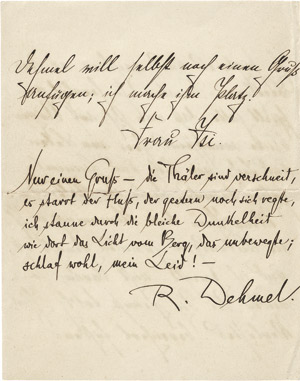 Dehmel will selbst noch einen Gruß
anfügen; ich mache ihm Platz.
Frau Isi.
Nur einen Gruß — die Thäler sind verschneit,
es starrt der Fluß, der gestern noch sich regte,
ich staune durch die bleiche Dunkelheit
wie dort das Licht vom Berg, das unbewegte;
schlaf wohl, mein Leid! —
R. Dehmel.